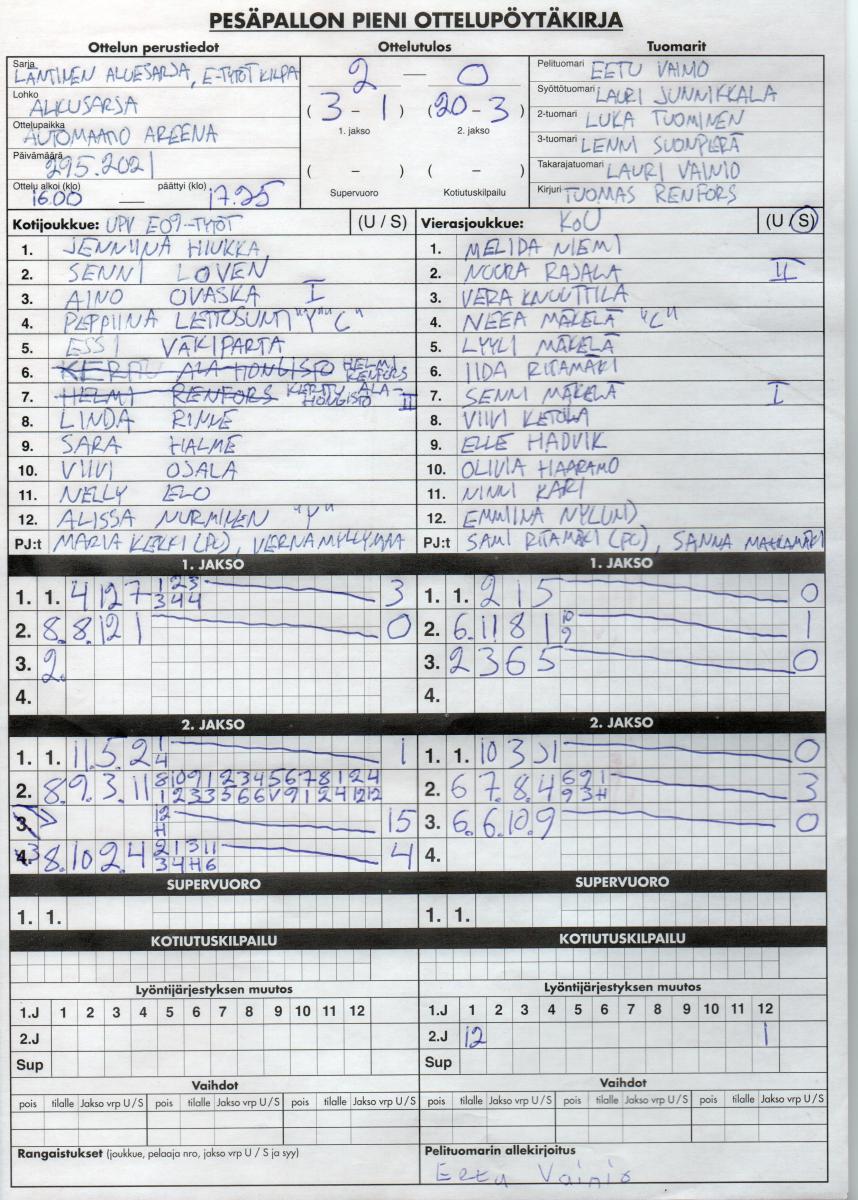 PESÄPALLON PIENI OTTELUPÖYTÄKIRJA
Ottelun perustiedot
Sarja LÄNTINEN ALUESARJA, E-TYTÖT KILPA
Lohko ALKUSARJA
Ottelupaikka AUTOMAATIO AREENA
Päivämäärä 29.5.2021
Ottelu alkoi (klo) 16.00 — päättyi (klo) 17.25
Ottelutulos
2 — 0
( 3 - 1 ) ( 20 - 3 )
1. jakso 2. jakso
( - ) ( - )
Supervuoro Kotiutuskilpailu
Tuomarit
Pelituomari EETU VAIMO
Syöttötuomari LAURI JUNNIKKALA
2-tuomari LUKA TUOMINEN
3-tuomari LENNI SUONPERÄ
Takarajatuomari LAURI VAINIO
Kirjuri TUOMAS RENFORS
Kotijoukkue: UPV E09-TYTÖT (U / S)
1. JENNIINA HIUKKA
2. SENNI LOVEN
3. AINO OVASKA I
4. PEPPIINA LEHTOSUNTI "Y" "C"
5. ESSI VÄKIPARTA
6. KERTTU ALA-HONGISTO HELMI RENFORS
7. HELMI RENFORS KERTTU ALA-HONGISTO II
8. LINDA RINNE
9. SARA HALME
10. VIIVI OJALA
11. NELLY ELO
12. ALISSA NURMINEN "Y"
PJ:t MARIA KERKI (PC), VERNA MYLLYMAA
Vierasjoukkue: KoU (U / S)
1. MELIDA NIEMI
2. NUURA RAJALA II
3. VERA KNUUTTILA
4. NEEA MÄKELÄ "C"
5. LYYLI MÄKELÄ
6. IIDA RITAMÄKI
7. SENNI MÄKELÄ I
8. VIIVI KETOLA
9. ELLE HADVIK
10. OLIVIA HAARAMO
11. NINNI KARI
12. EMMIINA NYLUND
PJ:t SAMI RITAMÄKI (PC), SANNA MATKAMÄKI
1. JAKSO
1. 1. 4 12 7 1 2 3 3
3 4 4
2. 8. 8. 12 1 0
3. 2.
4.
1. JAKSO
1. 1. 2 1 5 0
2. 6. 11 8 1 10 1
9
3. 2 3 6 5 0
4.
2. JAKSO
1. 1. 11. 5. 2 1 1
4
2. 8. 9. 3. 11 8 10 9 1 2 3 4 5 6 7 8 1 2 4
1 2 3 3 5 6 6 V 9 1 2 4 12 12
3. 12 15
H
4. 8. 10 2. 4 2 1 3 11 4
3 4 H 6
2. JAKSO
1. 1. 10 3 11 0
2. 6 7. 8. 4 6 9 1 3
9 3 H
3. 6. 6. 10. 9 0
4.
SUPERVUORO
1. 1.
SUPERVUORO
1. 1.
KOTIUTUSKILPAILU
KOTIUTUSKILPAILU
Lyöntijärjestyksen muutos
1.J 1 2 3 4 5 6 7 8 9 10 11 12
2.J
Sup
Lyöntijärjestyksen muutos
1.J 1 2 3 4 5 6 7 8 9 10 11 12
2.J 12 1
Sup
Vaihdot
pois tilalle Jakso vrp U / S pois tilalle Jakso vrp U / S pois tilalle Jakso vrp U / S
Vaihdot
pois tilalle Jakso vrp U / S pois tilalle Jakso vrp U / S pois tilalle Jakso vrp U / S
Rangaistukset (joukkue, pelaaja nro, jakso vrp U / S ja syy)
Pelituomarin allekirjoitus
Eetu Vainio